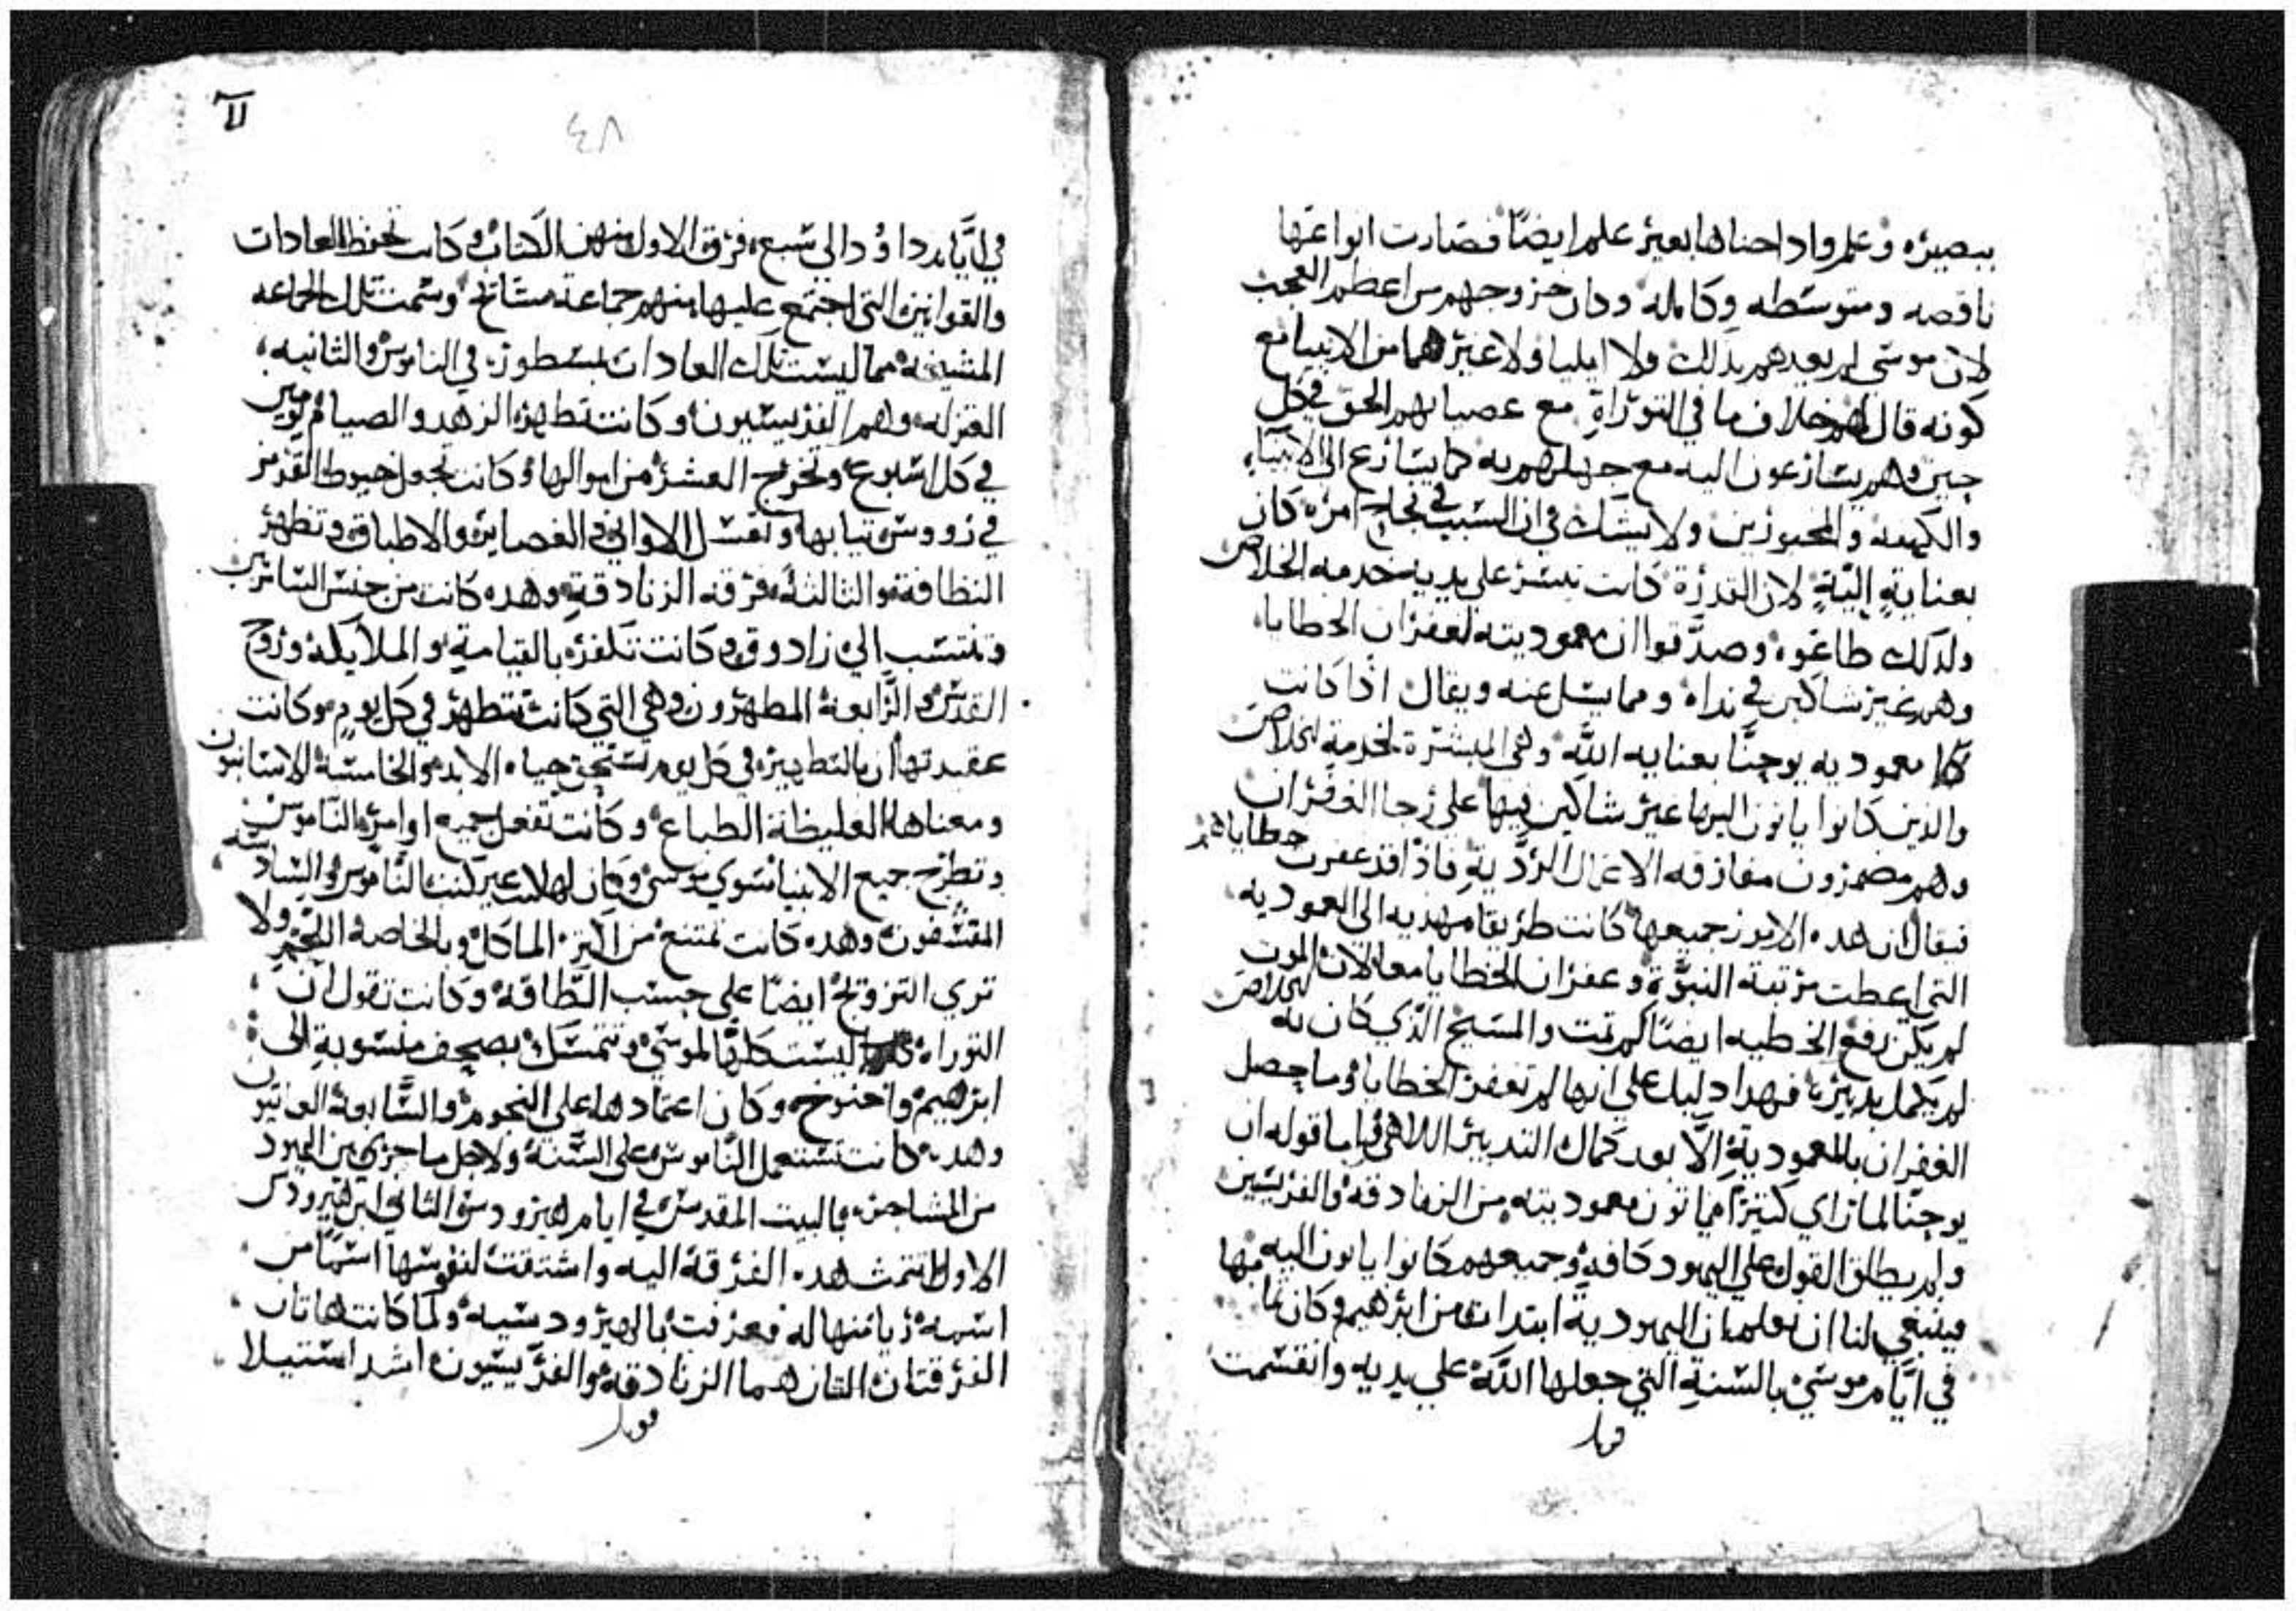 ببصيره وعلم واداحناها بغير علم ايضًا فصارت انواعها
ناقصه ومتوسطه وكامله وكان خروجهم من اعظم العجب
لان موسى لم يعدهم بذلك ولا ايليا ولا غيرهما من الانبيا مع
كونه قال لهم خلاف ما في التوراة مع عصيانهم الحق في كل
حين وهم يسارعون اليه مع جهلهم به كما يسارع الى الانبياء
والكهنه والمخبورين ولا يشك في ان السبب في نجاح امره كان
بعناية إلهية لان القدرة كانت تيسر على يديه خدمه الخلاص
ولذلك طاعوه وصدقوا ان معموديته لغفران الخطايا
وهم غير شاكين في نداه ومما يسل عنه ويقال اذا كانت
معموديه يوحنا بعنايه الله وهي الميسرة لخدمة الخلاص
والذين كانوا ياتون اليها غير شاكين فيها على رجا الغفران
وهم مضمرون مفارقه الاعمال الردية فاذا قد غفرت خطاياهم
فيقال ان هده الامور جميعها كانت طريقا مهديه الى المعموديه
التي اعطت مرتبة النبوة وغفران الخطايا معا لان الموت
لم يكن رفع الخطيه ايضا لم تمت والمسيح الذي كان به الخلاص
لم يكمل تدبيره فهدا دليل على انها لم تغفر الخطايا وما حصل
الغفران بالمعمودية الا بعد كمال التدبير اللاهي واما قوله ان
يوحنا لما راي كثيرا ياتون معموديته من الزنادقه والفريسين
ولم يطلق القول على اليهود كافه وجميعهم كانوا ياتون اليه
فينبغي لنا ان نعلم ان اليهودية ابتدات من ابرهيم وكان
في ايام موسى بالسنة التي جعلها الله على يديه وانقسمت
قوبل
٤٨
في ايام داؤد الى سبع فرق الاول منهن الكتاب وكانت تحفظ العادات
والقوانين التي اجتمع عليها منهم جماعة مشائخ وسمت تلك الجماعه
المشيخه مما ليست تلك العادات بمسطوره في الناموس والثانيه
المعتزله وهم الفريسيون وكانت تظهر الزهد والصيام يومين
في كل اسبوع وتخرج العشر من اموالها وكانت تجعل خيوط القرمز
في رووس تيابها وتغسل الاواني والغضاير والاطباق وتظهر
النظافة والثالثة فرقة الزنادقة وهده كانت من جنس السامرين
وتنتسب الى زادوق وكانت تكفر بالقيامة والملايكة وروح
القدس والرابعة المطهرون وهي التي كانت تتطهر في كل يوم وكانت
عقيدتها ان بالتطهير في كل يوم تستحق حياه الابد والخامسة الاسانيون
ومعناها الغليظة الطباع وكانت تفعل جميع اوامر الناموس
وتطرح جميع الانبيا سوى موسى وكان لها كتب غير كتب الناموس والسادسه
المقشفون وهده كانت تمتنع من اكثر الماكل وبالخاصة اللحم ولا
تري التزويج ايضا على حسب الطاقة وكانت تقول ان
التوراه ليست كلها لموسى وتتمسك بصحف منسوبة الى
ابرهيم واخنوخ وكان اعتمادها على النجوم والسابعة
وهده كانت تستعمل الناموس على السنة ولاجل ما جري بين اليهود
من المشاجره بالبيت المقدس في ايام هيرودس الثاني ابن هيرودس
الاول انتمت هده الفرقة اليه واشتقت لنفوسها اسما من
اسمه فعرفت بالهيرودسيه ولما كانت هاتان
الفرقتان اللتان هما الزنادقه والفريسيون اشد استيلا
قوبل